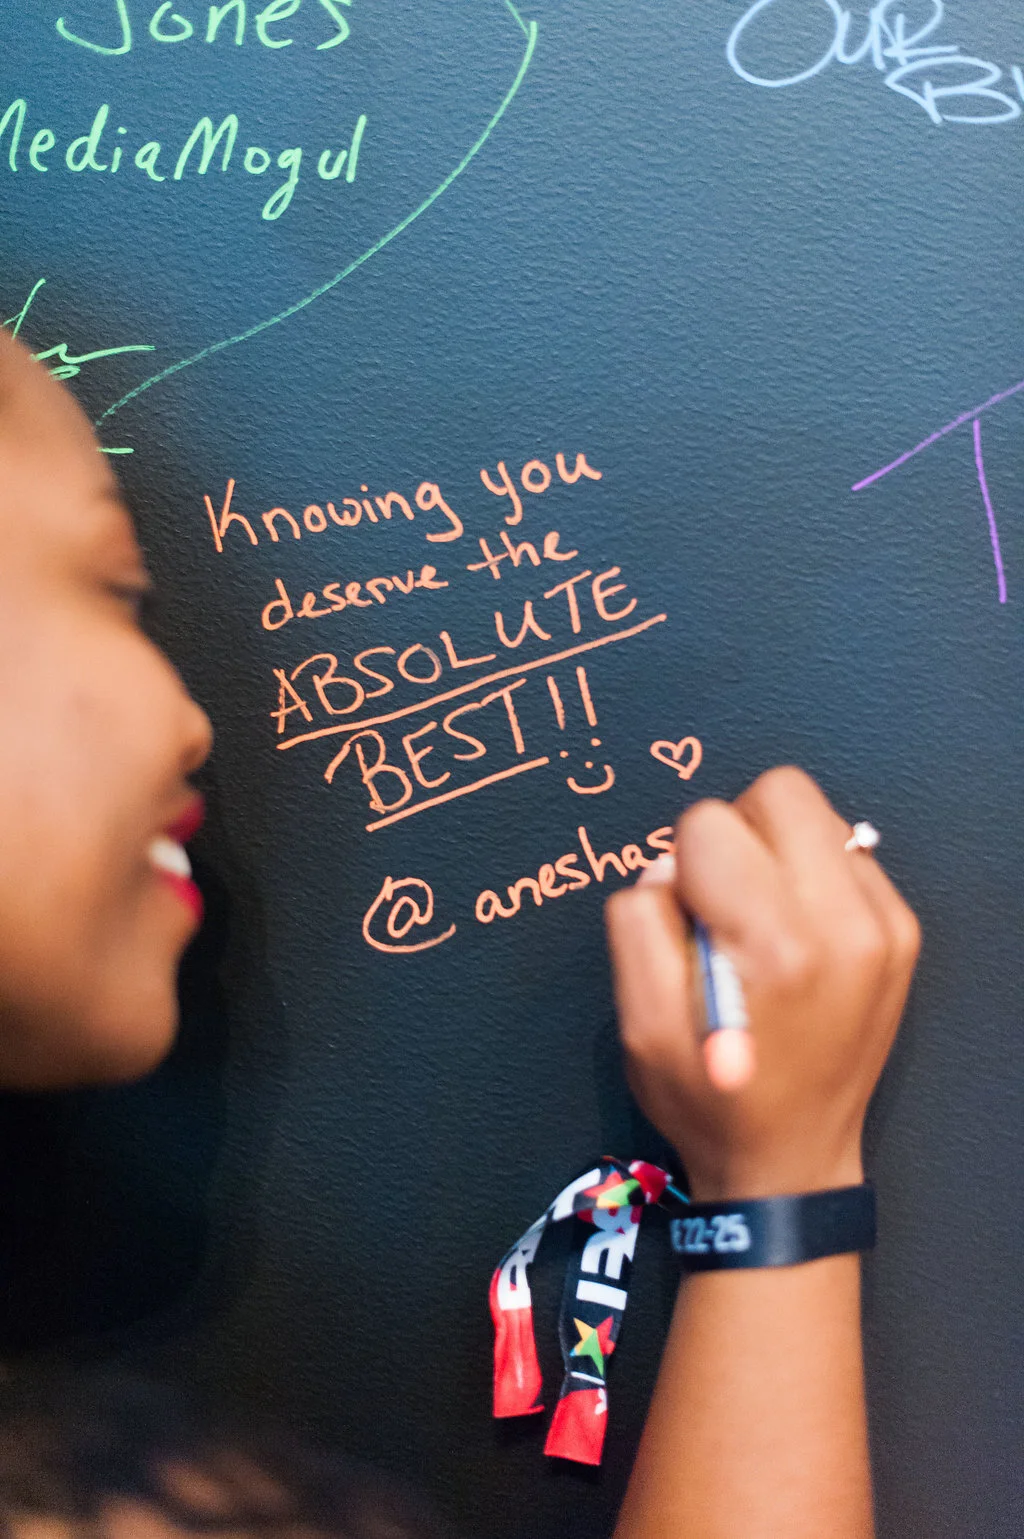 Jones
MediaMogul
OUR
Knowing you
deserve the
ABSOLUTE
BEST!!
@aneshas
E22-25